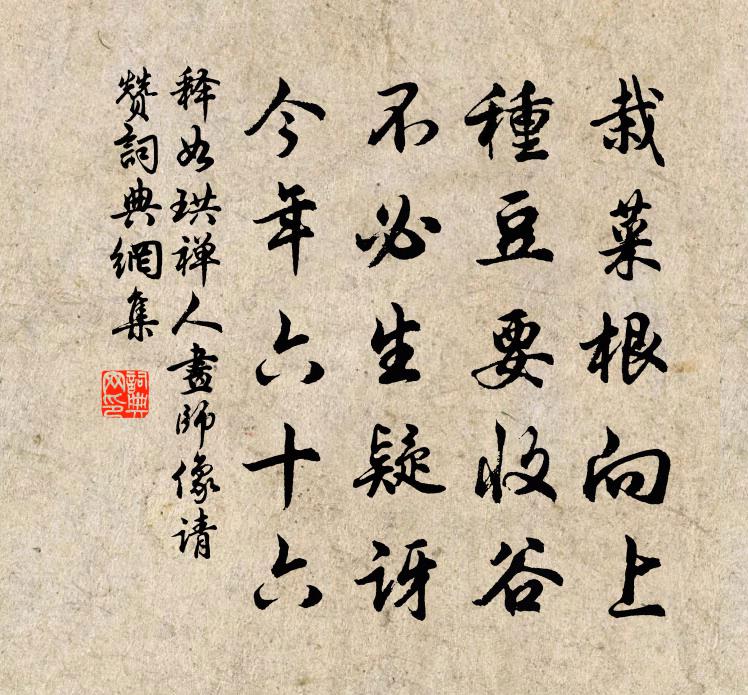 栽菜根向上
種豆要收谷
不必生疑訝
今年六十六
释如珙禅人畫师像请
赞詞典網集
詞典網印